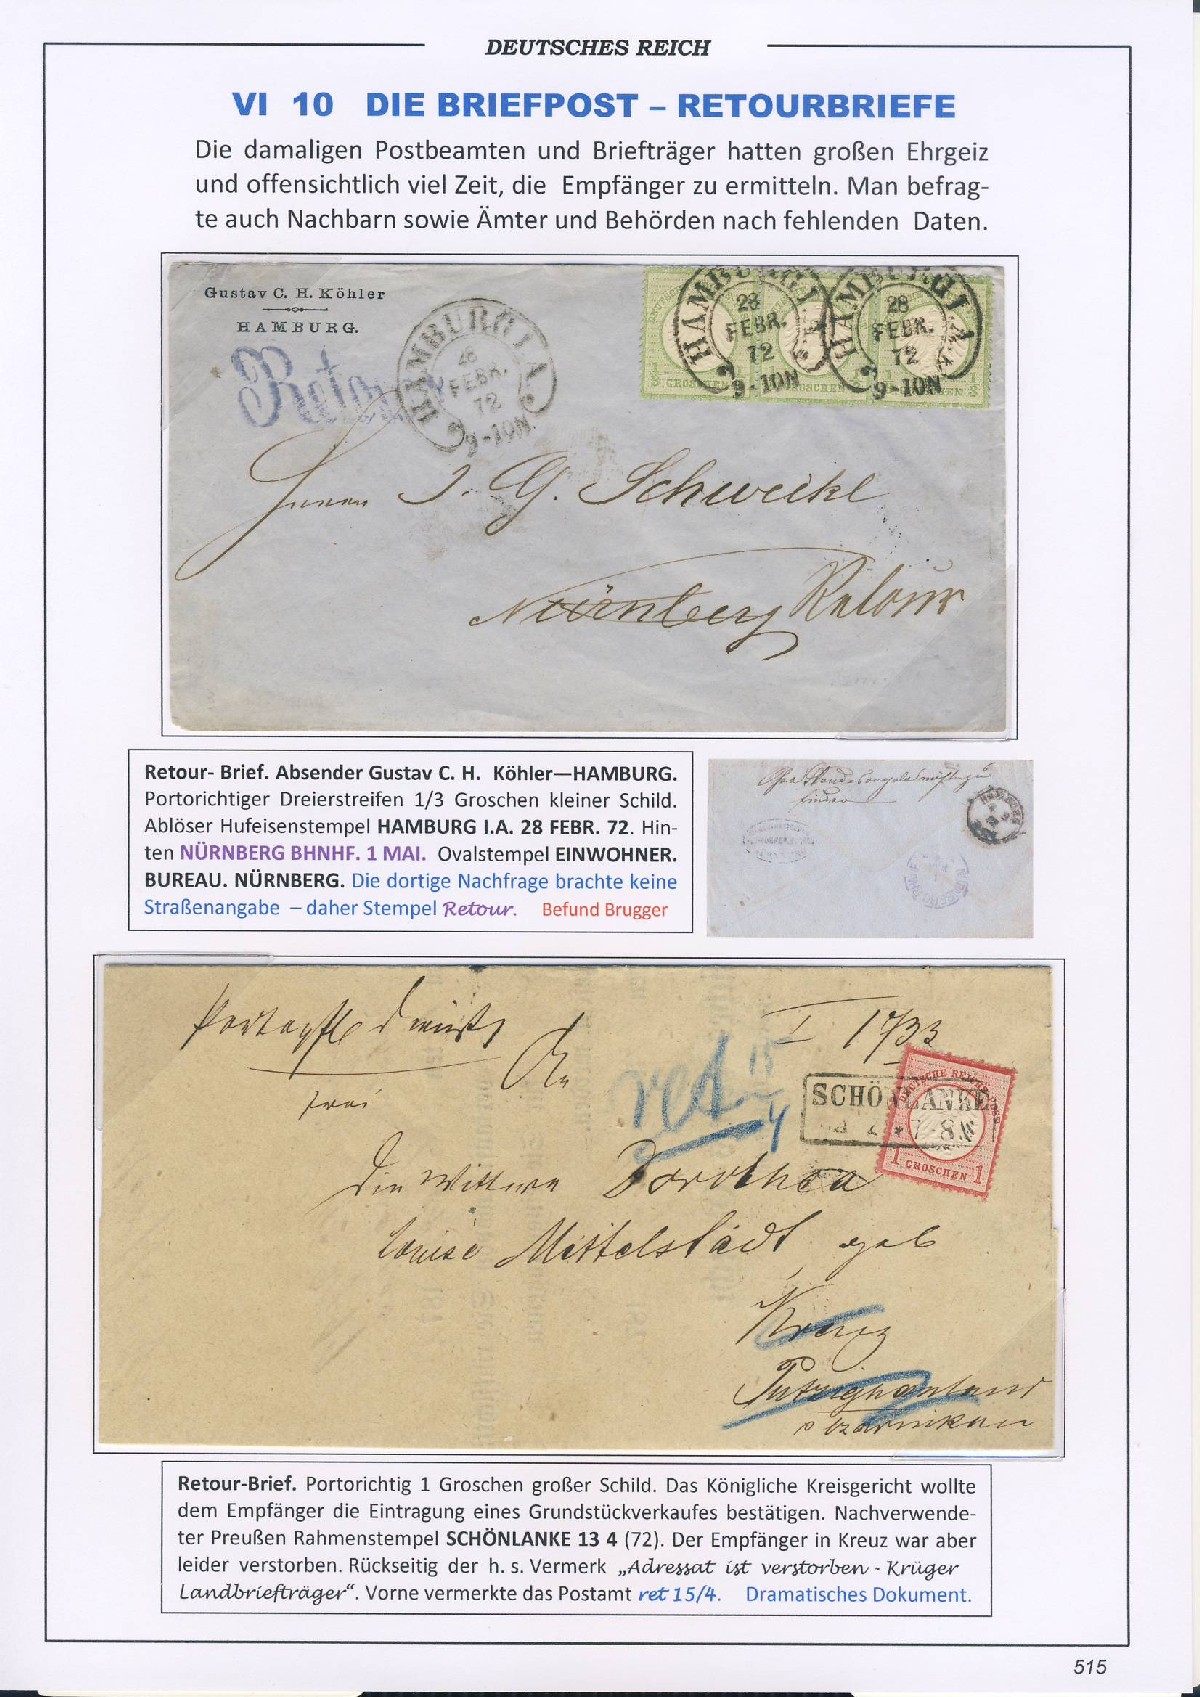 DEUTSCHES REICH
VI 10 DIE BRIEFPOST – RETOURBRIEFE
Die damaligen Postbeamten und Briefträger hatten großen Ehrgeiz
und offensichtlich viel Zeit, die Empfänger zu ermitteln. Man befrag-
te auch Nachbarn sowie Ämter und Behörden nach fehlenden Daten.
Gustav C. H. Köhler
HAMBURG.
Retour
HAMBURG I.A.
28
FEBR.
72
9-10N.
HAMBURG I.A.
28
FEBR.
72
9-10N
HAMBURG I.A.
28
FEBR.
72
9-10N
GROSCHEN
Herrn J. G. Schweikl
Nürnberg Retour
Retour- Brief. Absender Gustav C. H. Köhler—HAMBURG.
Portorichtiger Dreierstreifen 1/3 Groschen kleiner Schild.
Ablöser Hufeisenstempel HAMBURG I.A. 28 FEBR. 72. Hin-
ten NÜRNBERG BHNHF. 1 MAI. Ovalstempel EINWOHNER.
BUREAU. NÜRNBERG. Die dortige Nachfrage brachte keine
Straßenangabe – daher Stempel Retour. Befund Brugger
finden
I 1733
An
frei
ret 15/4
SCHÖNLANKE
1 GROSCHEN 1
die Wittwe Dorothea
Louise Mittelstädt geb
Kreuz
Retour-Brief. Portorichtig 1 Groschen großer Schild. Das Königliche Kreisgericht wollte
dem Empfänger die Eintragung eines Grundstückverkaufes bestätigen. Nachverwende-
ter Preußen Rahmenstempel SCHÖNLANKE 13 4 (72). Der Empfänger in Kreuz war aber
leider verstorben. Rückseitig der h. s. Vermerk „Adressat ist verstorben - Krüger
Landbriefträger“. Vorne vermerkte das Postamt ret 15/4. Dramatisches Dokument.
515